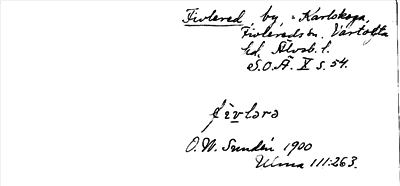 Fivlered, by, = Karlskoga,
Fivlereds sn. Vartofta
hd. Älvsb. l.
S.O.Ä. X s. 54.
fìvlərə
O. W. Sundén 1900
Ulma 111:263.